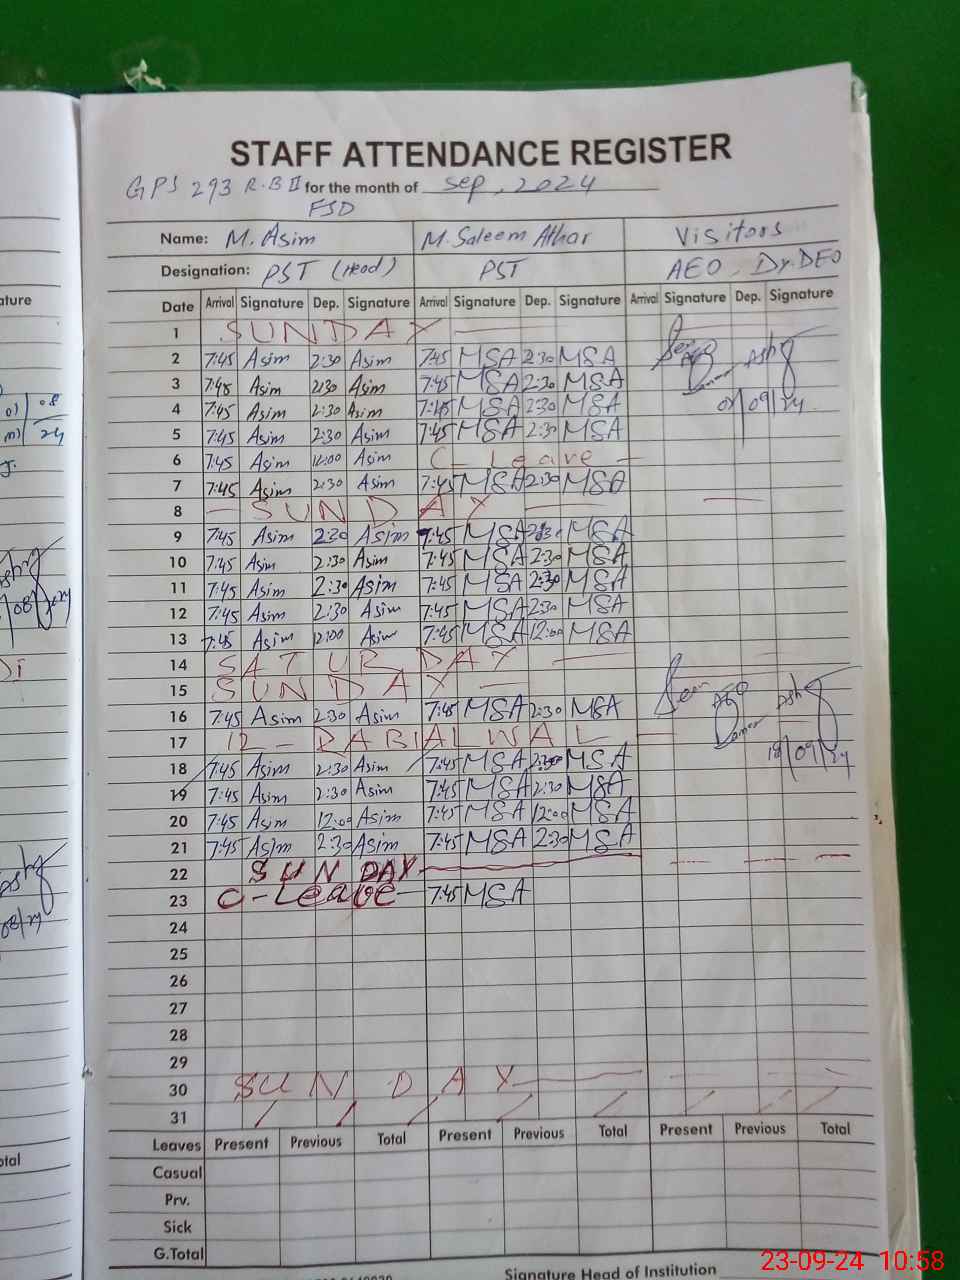 STAFF ATTENDANCE REGISTER
GPS 293 R.B II for the month of Sep, 2024
FSD
Name: M. Asim M. Saleem Athar Visitors
Designation: PST (Head) PST AEO, Dy.DEO
Date Arrival Signature Dep. Signature Arrival Signature Dep. Signature Arrival Signature Dep. Signature
1 SUNDAY
2 7:45 Asim 2:30 Asim 7:45 MSA 2:30 MSA
3 7:45 Asim 2:30 Asim 7:45 MSA 2:30 MSA
4 7:45 Asim 2:30 Asim 7:45 MSA 2:30 MSA
5 7:45 Asim 2:30 Asim 7:45 MSA 2:30 MSA
6 7:45 Asim 12:00 Asim C- Leave
7 7:45 Asim 2:30 Asim 7:45 MSA 2:30 MSA
8 SUNDAY
9 7:45 Asim 2:30 Asim 7:45 MSA 2:30 MSA
10 7:45 Asim 2:30 Asim 7:45 MSA 2:30 MSA
11 7:45 Asim 2:30 Asim 7:45 MSA 2:30 MSA
12 7:45 Asim 2:30 Asim 7:45 MSA 2:30 MSA
13 7:45 Asim 12:00 Asim 7:45 MSA 12:00 MSA
14 SATURDAY
15 SUNDAY
16 7:45 Asim 2:30 Asim 7:45 MSA 2:30 MSA
17 12 - RABIALWAL
18 7:45 Asim 2:30 Asim 7:45 MSA 2:30 MSA 18/09/24
19 7:45 Asim 2:30 Asim 7:45 MSA 2:30 MSA
20 7:45 Asim 12:00 Asim 7:45 MSA 12:00 MSA
21 7:45 Asim 2:30 Asim 7:45 MSA 2:30 MSA
22 SUNDAY
23 C-Leave 7:45 MSA
24
25
26
27
28
29
30 SUNDAY
31
Leaves Present Previous Total Present Previous Total Present Previous Total
Casual
Prv.
Sick
G.Total
Signature Head of Institution
23-09-24 10:58